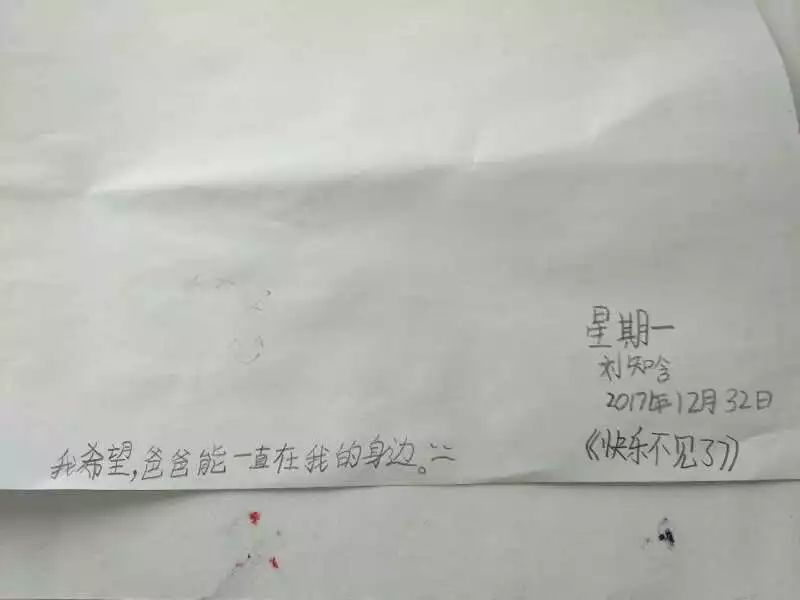 星期一
刘知晗
2017年12月32日
《快乐不见了》
我希望,爸爸能一直在我的身边。